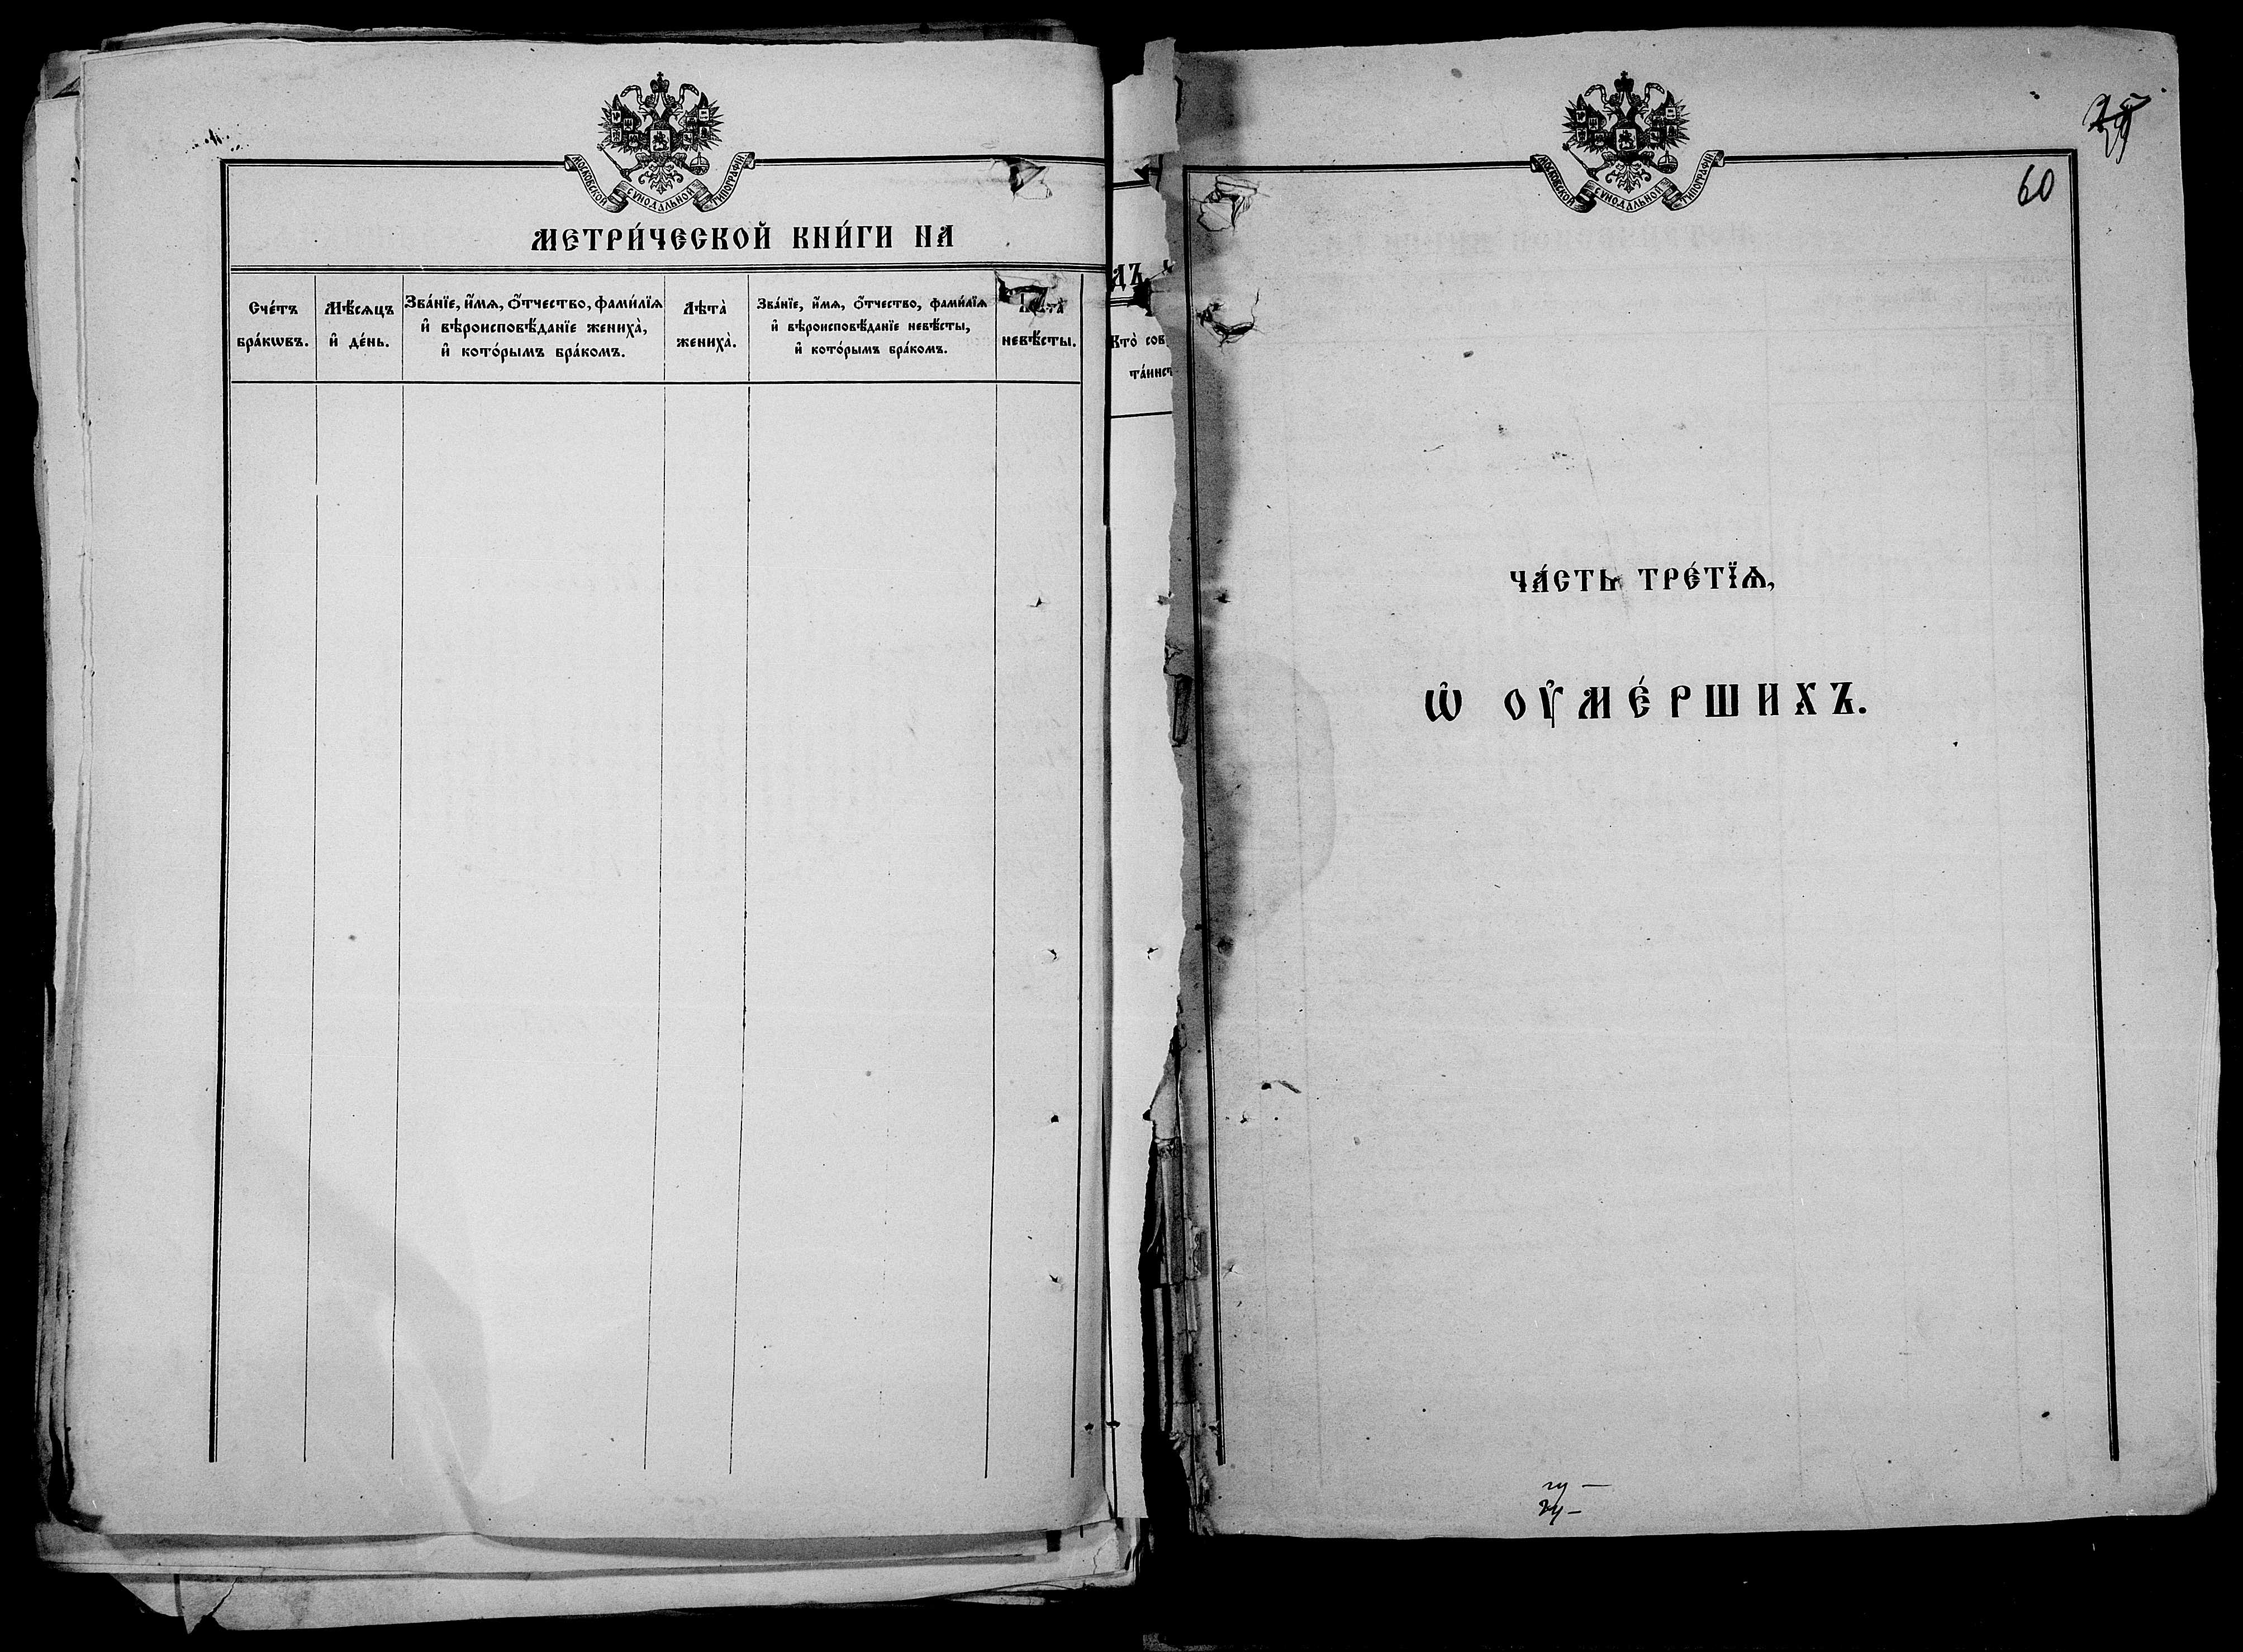 МОСКОВСКОЙ СѴНОДАЛЬНОЙ ТИПОГРАФІИ.
МЕТРИ́ЧЕСКОЙ КНИ́ГИ НА
Сче́тъ
бра́кѡвъ.
Мѣ́сѧцъ
и҆ де́нь.
Зва́нїе, и҆́мѧ, ѻ҆́тчество, фами́лїѧ
и҆ вѣроисповѣ́данїе жениха̀,
и҆ кото́рымъ бра́комъ.
Лѣта̀
жениха̀.
Зва́нїе, и҆́мѧ, ѻ҆́тчество, фами́лїѧ
и҆ вѣроисповѣ́данїе невѣ́сты,
и҆ кото́рымъ бра́комъ.
невѣ́сты.
дъ
Кто̀ сов
та́инст
МОСКОВСКОЙ СѴНОДАЛЬНОЙ ТИПОГРАФІИ.
60
ЧА́СТЬ ТРЕ́ТЇѦ,
Ѡ҆ ОУ҆МЕ́РШИХЪ.